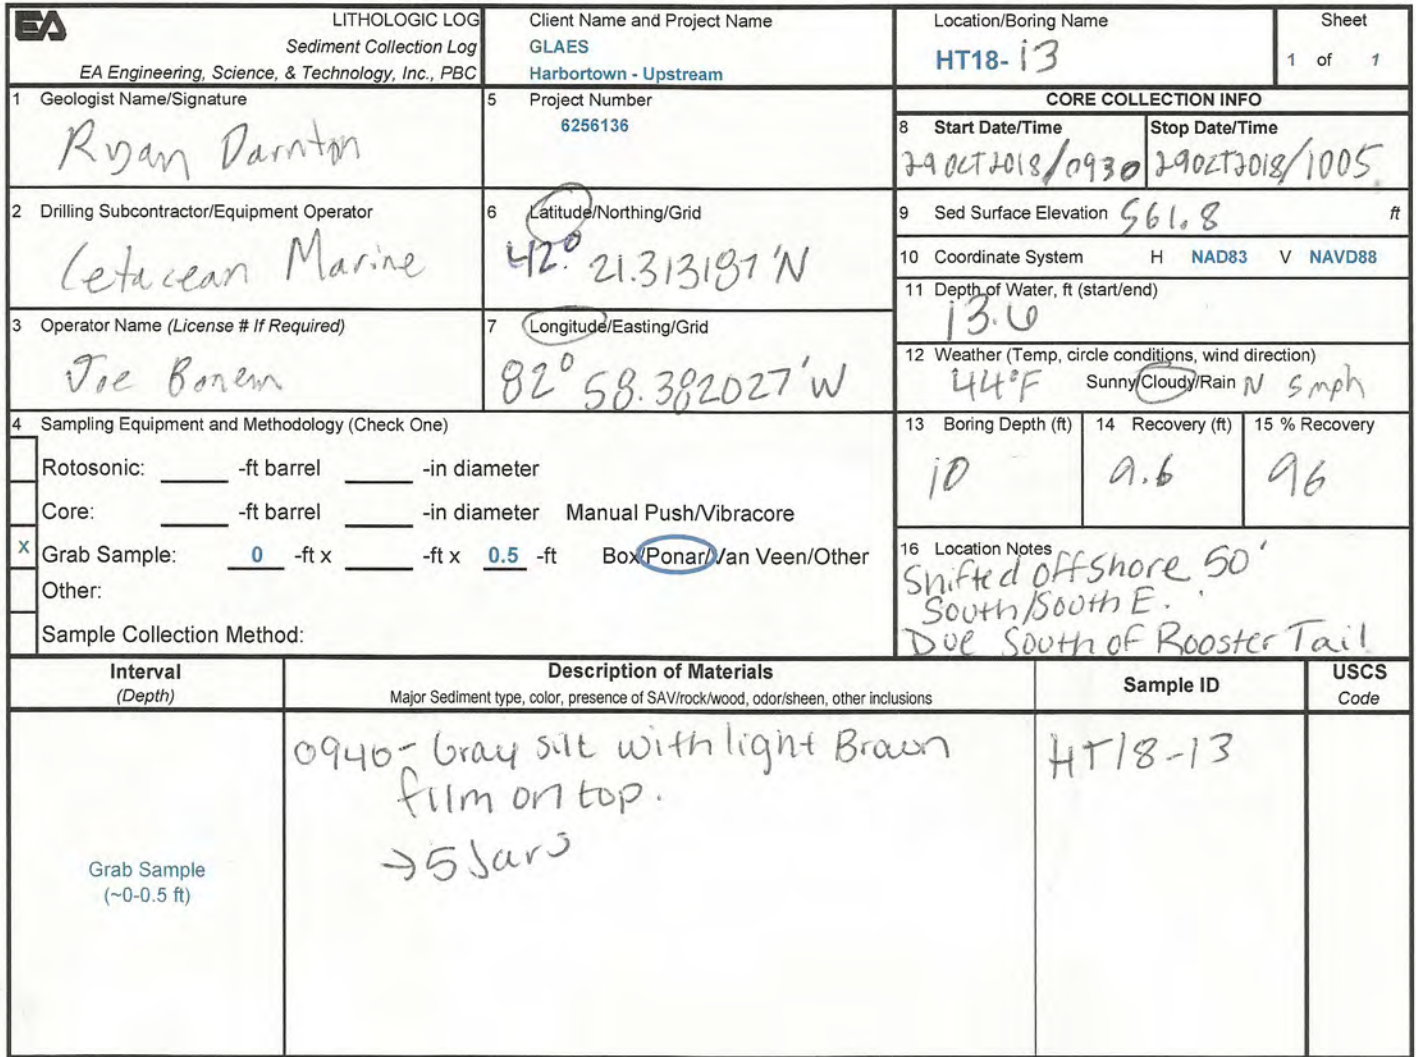 EA
LITHOLOGIC LOG
Sediment Collection Log
EA Engineering, Science, & Technology, Inc., PBC
Client Name and Project Name
GLAES
Harbortown - Upstream
Location/Boring Name
HT18- 13
Sheet
1 of 1
1 Geologist Name/Signature
Ryan Darnton
5 Project Number
6256136
CORE COLLECTION INFO
8 Start Date/Time
29 OCT 2018/0930
Stop Date/Time
29OCT2018/1005
2 Drilling Subcontractor/Equipment Operator
Cetacean Marine
6 Latitude/Northing/Grid
42° 21.313187'N
9 Sed Surface Elevation 561.8 ft
10 Coordinate System H NAD83 V NAVD88
11 Depth of Water, ft (start/end)
13.6
3 Operator Name (License # If Required)
Joe Bonem
7 Longitude/Easting/Grid
82° 58.382027'W
12 Weather (Temp, circle conditions, wind direction)
44°F Sunny/Cloudy/Rain N 5mph
4 Sampling Equipment and Methodology (Check One)
Rotosonic: -ft barrel -in diameter
Core: -ft barrel -in diameter Manual Push/Vibracore
X Grab Sample: 0 -ft x -ft x 0.5 -ft Box/Ponar/Van Veen/Other
Other:
Sample Collection Method:
13 Boring Depth (ft)
10
14 Recovery (ft)
9.6
15 % Recovery
96
16 Location Notes
Shifted offshore 50'
South/South E.
Due South of Rooster Tail
Interval
(Depth)
Description of Materials
Major Sediment type, color, presence of SAV/rock/wood, odor/sheen, other inclusions
Sample ID
USCS
Code
Grab Sample
(~0-0.5 ft)
0940- Gray silt with light Brown
film on top.
→5 Jars
HT18-13